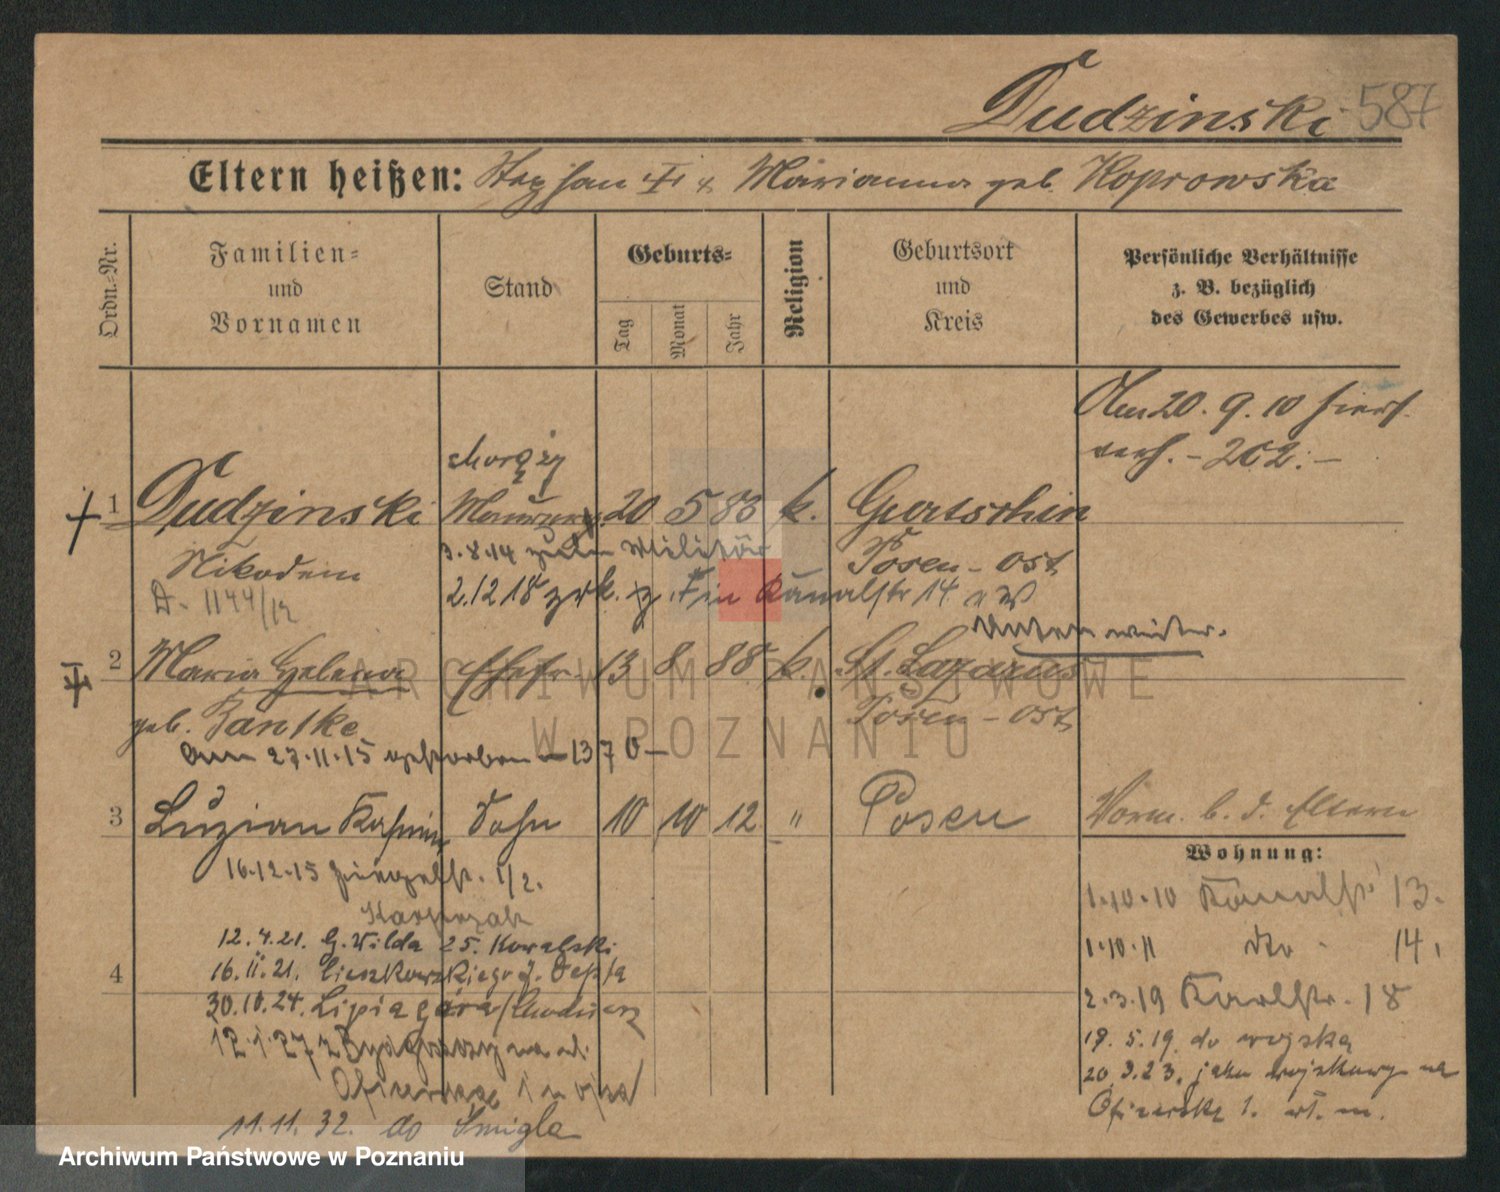 Dudzinski 587
Eltern heißen: Stephan u Marianna geb. Koprowska
Ordn.-Nr.
Familien-
und
Vornamen
Stand
Geburts-
Tag
Monat
Jahr
Religion
Geburtsort
und
Kreis
Persönliche Verhältnisse
z. B. bezüglich
des Gewerbes usw.
Am 20. 9. 10 hier
verh. - 262. -
chorąży
1 Dudzinski Maurer 20 5 83 k. Gurtschin
3.8.14 zum Militär
Nikodem Posen - Ost
A. 1144/12
2.12.18 zrk. in Kanalstr 14
Unten weiter.
2 Maria Helena Ehefr. 13 8 88 k. St. Lazarus
geb. Jantke Posen - Ost
Am 27.11.15 gestorben - 1370 -
3 Luzian Kasimir Sohn 10 10 12 " Posen
Vorm. b. d. Eltern
Wohnung:
16.12.15 1/2.
12.4.21. G. Wilda 25. Kowalski
16.11.21. Cieszkowskiego
4
30.10.24. Lipia góra/Chodzież
12.1.27 z Bydgoszczy
11.11.32. do Śmigla
1.10.10 Kanalstr. 13.
1.10.11 dto - 14.
2.3.19 Karlstr. 18
19.5.19. do wojska
20.3.23. jako wojskowy
Oficerska 1.
ARCHIWUM PAŃSTWOWE
W POZNANIU
Archiwum Państwowe w Poznaniu